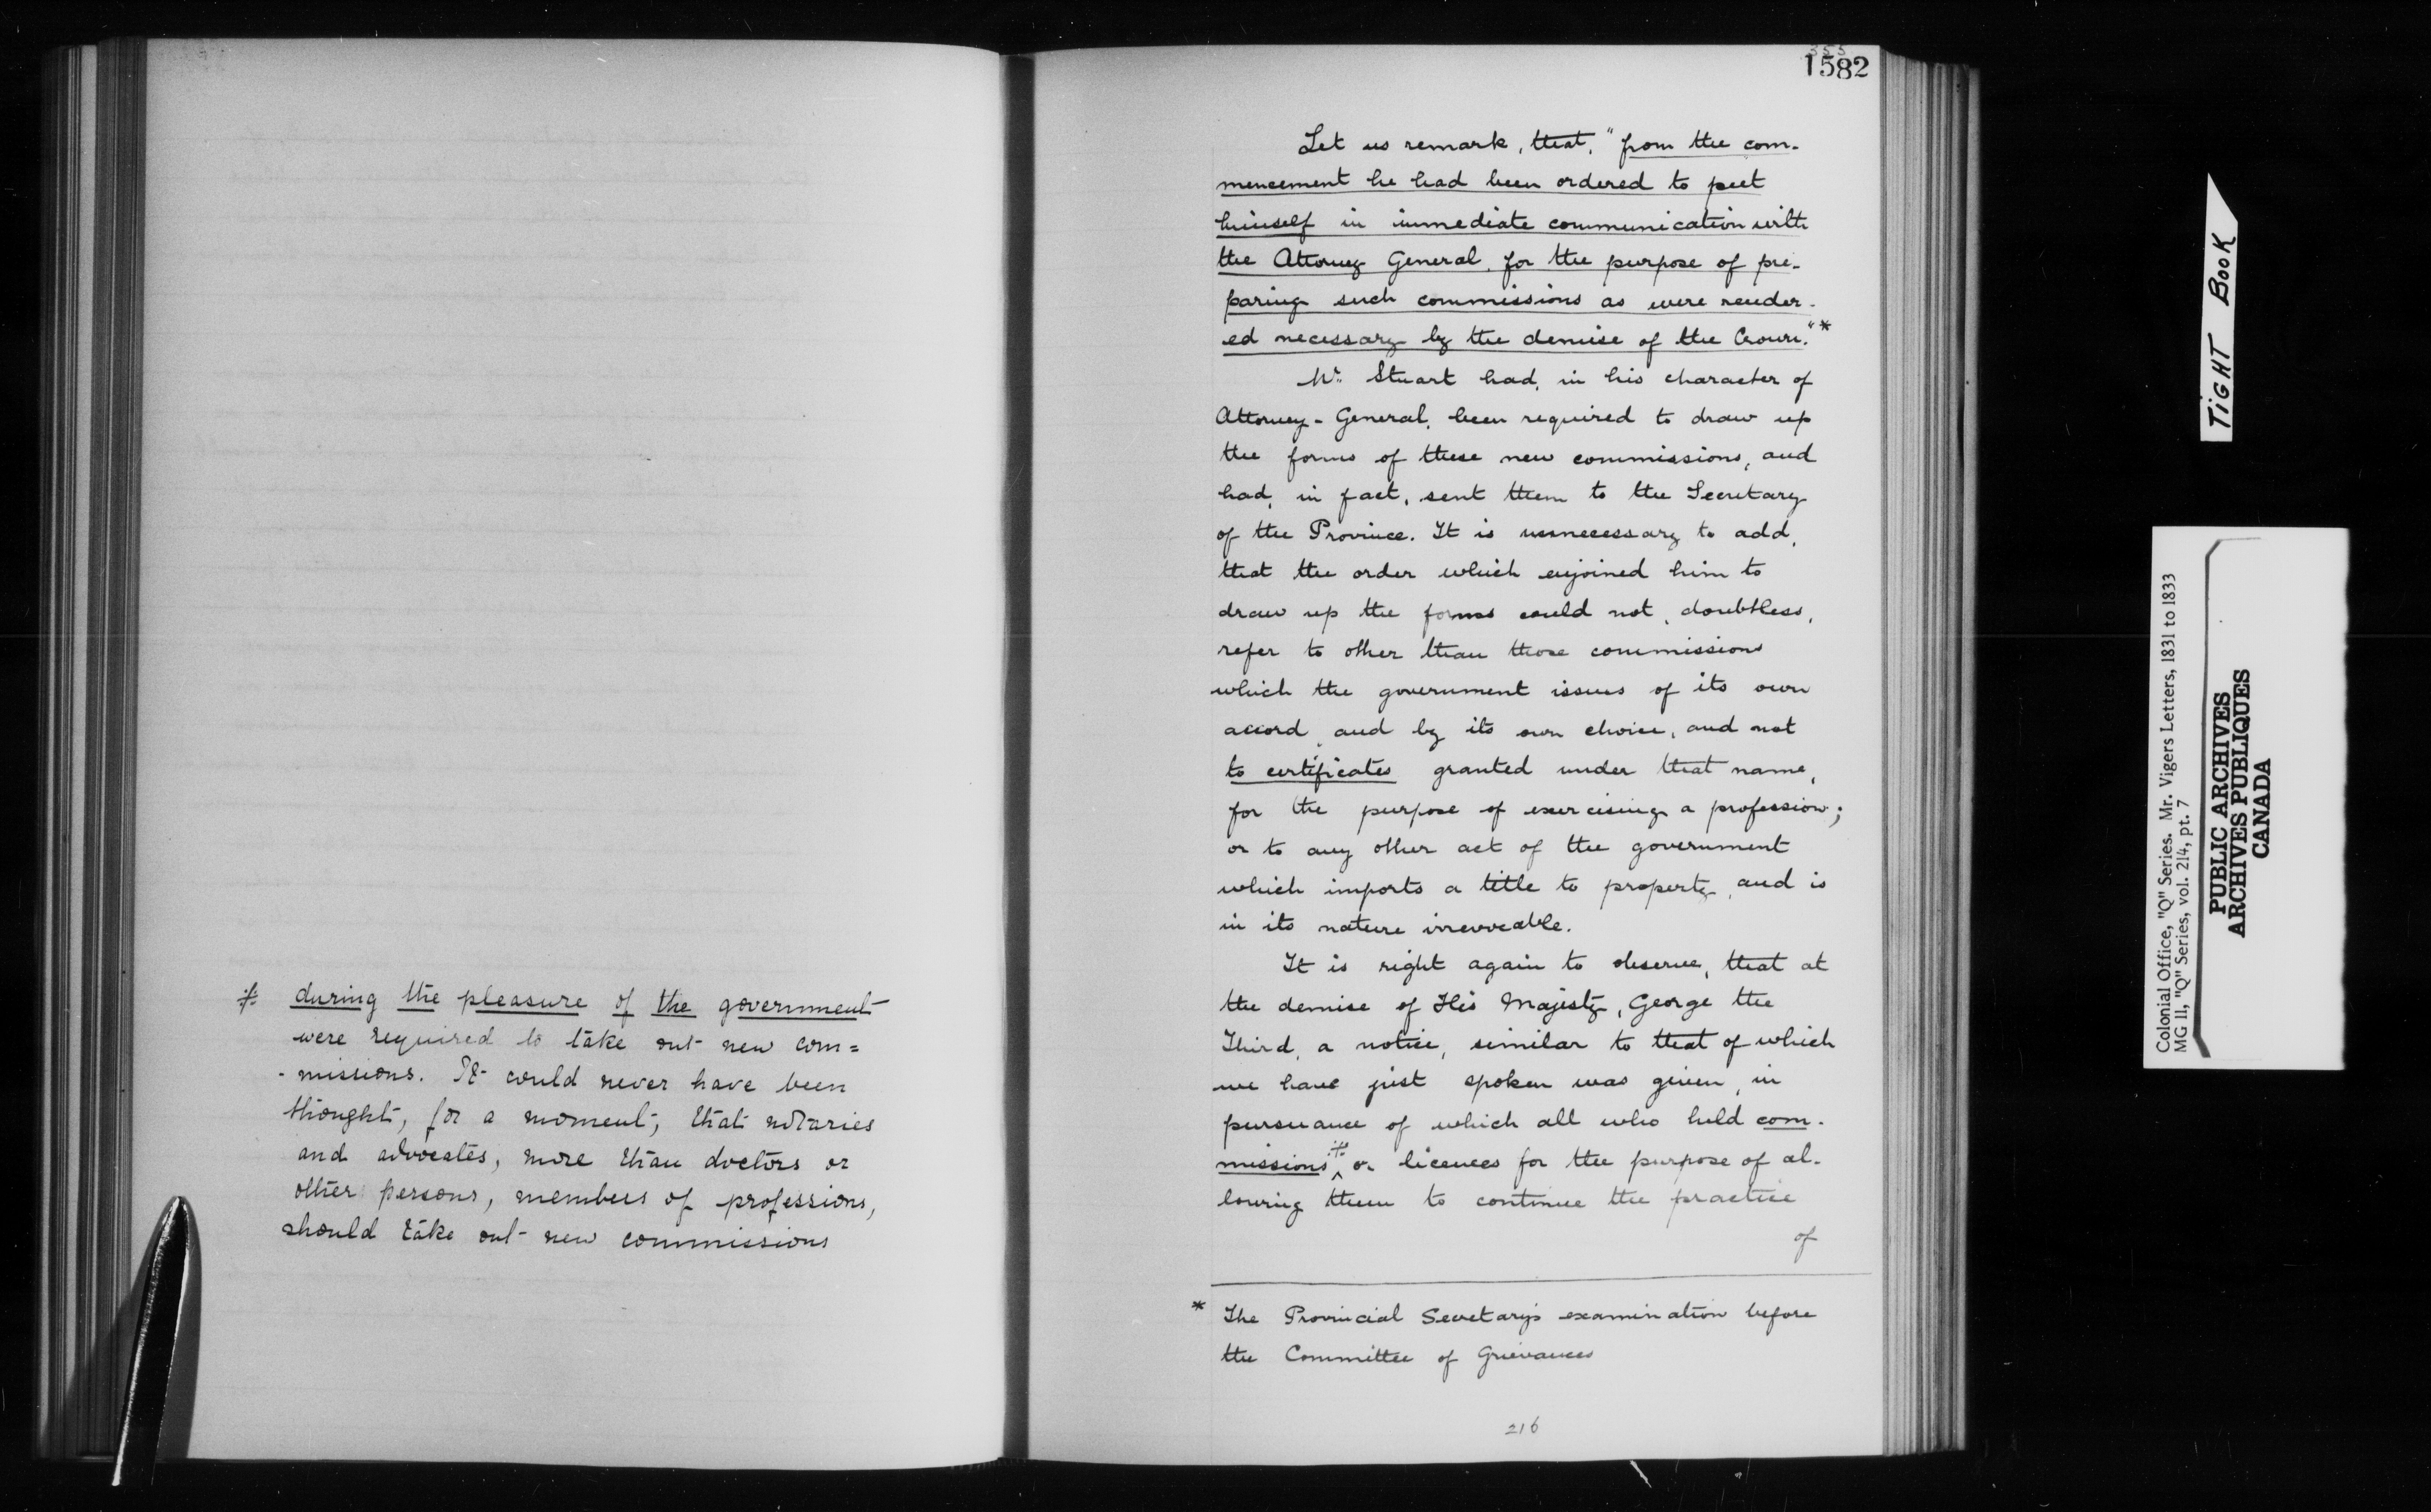 # during the pleasure of the government
were required to take out new com=
- missions. It could never have been
thought, for a moment, that notaries
and advocates, more than doctors or
other persons, members of professions,
should take out new commissions
355
1582
Let us remark, that, "from the com-
mencement he had been ordered to put
himself in immediate communication with
the Attorney General, for the purpose of pre-
paring such commissions as were render-
ed necessary by the demise of the Crown."*
Mr. Stuart had, in his character of
Attorney-General, been required to draw up
the forms of these new commissions, and
had, in fact, sent them to the Secretary
of the Province. It is unnecessary to add,
that the order which enjoined him to
draw up the forms could not, doubtless,
refer to other than those commissions
which the government issues of its own
accord, and by its own choice, and not
to certificates granted under that name,
for the purpose of exercising a profession;
or to any other act of the government
which imports a title to property, and is
in its nature irrevocable.
It is right again to observe, that at
the demise of His Majesty, George the
Third, a notice, similar to that of which
we have just spoken was given, in
pursuance of which all who held com-
missions # or licences for the purpose of al-
lowing them to continue the practice
of
* The Provincial Secretary's examination before
the Committee of Grievances
216
TIGHT BOOK
Colonial Office, "Q" Series. Mr. Vigers Letters, 1831 to 1833
MG 11, "Q" Series, vol. 214, pt. 7
PUBLIC ARCHIVES
ARCHIVES PUBLIQUES
CANADA